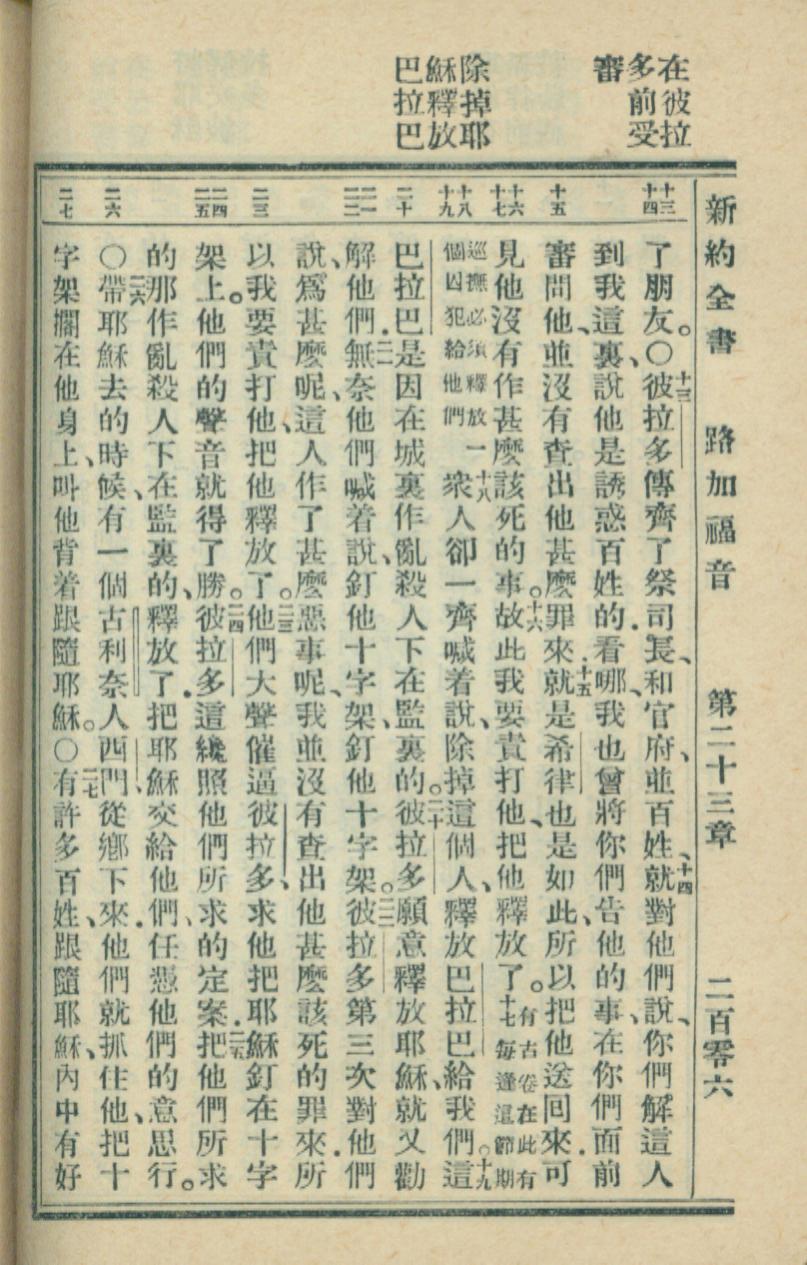 新約全書 路加福音 第二十三章 二百零六
在彼拉
多前受
審
除掉耶
穌釋放
巴拉巴
十三 十四
十五
十六 十七
十八 十九
二十
二一 二二
二三
二四 二五
二六
二七
了朋友。〇十三彼拉多傳齊了祭司長、和官府、並百姓、十四就對他們說、你們解這人
到我這裏、說他是誘惑百姓的.看哪、我也曾將你們告他的事、在你們面前
審問他、並沒有查出他甚麼罪來.十五就是希律也是如此、所以把他送回來.可
見他沒有作甚麼該死的事。十六故此我要責打他、把他釋放了。有古卷在此有十七每逢這節期
巡撫必須釋放一個囚犯給他們十八衆人卻一齊喊着說、除掉這個人、釋放巴拉巴給我們。十九這
巴拉巴是因在城裏作亂殺人下在監裏的。二十彼拉多願意釋放耶穌、就又勸
解他們.二一無奈他們喊着說、釘他十字架、釘他十字架。二二彼拉多第三次對他們
說、爲甚麼呢、這人作了甚麼惡事呢、我並沒有查出他甚麼該死的罪來.所
以我要責打他、把他釋放了。二三他們大聲催逼彼拉多、求他把耶穌釘在十字
架上。他們的聲音就得了勝。二四彼拉多這纔照他們所求的定案.二五把他們所求
的那作亂殺人下在監裏的、釋放了.把耶穌交給他們、任憑他們的意思行。
〇二六帶耶穌去的時候、有一個古利奈人西門、從鄉下來.他們就抓住他、把十
字架擱在他身上、叫他背着跟隨耶穌。〇二七有許多百姓、跟隨耶穌、內中有好